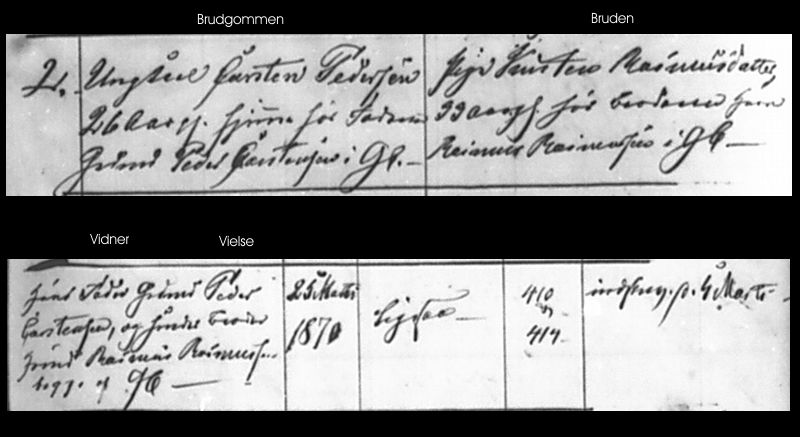 Brudgommen
Bruden
2. Ungkarl Carsten Pedersen
26 Aar gl. hjemme hos Faderen
Grmd Peder Carstensen i Gl. —
Pige Kirsten Rasmusdatter,
33 aar gl hos Broderen
Rasmus Rasmussen i Gl —
Vidner
Vielse
hans Fader Grmd Peder
Carstensen, og hendes Broder
Hmd Rasmus Rasmussen
begge af Gl —
25 Marts
1870
410
414.
p. 4 Marts